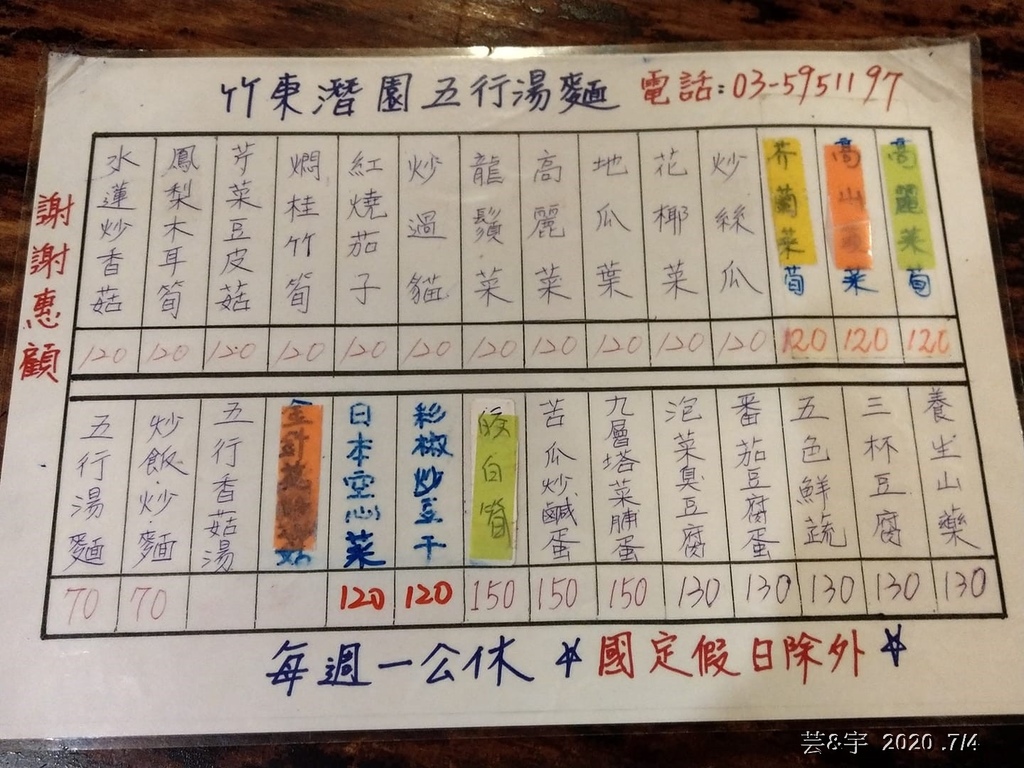 竹東潛園五行湯麵 電話:03-5951197
謝謝惠顧
水蓮炒香菇 120
鳳梨木耳筍 120
芹菜豆皮菇 120
燜桂竹筍 120
紅燒茄子 120
炒過貓 120
龍鬚菜 120
高麗菜 120
地瓜葉 120
花椰菜 120
炒絲瓜 120
芥蘭菜筍 120
高山 菜 120
高麗菜筍 120
五行湯麵 70
炒飯.炒麵 70
五行香菇湯
金針 菇
日本空心菜 120
彩椒炒豆干 120
茭白筍 150
苦瓜炒鹹蛋 150
九層塔菜脯蛋 150
泡菜臭豆腐 130
番茄豆腐蛋 130
五色鮮蔬 130
三杯豆腐 130
養生山藥 130
每週一公休 ☆國定假日除外☆
芸&宇 2020.7/4